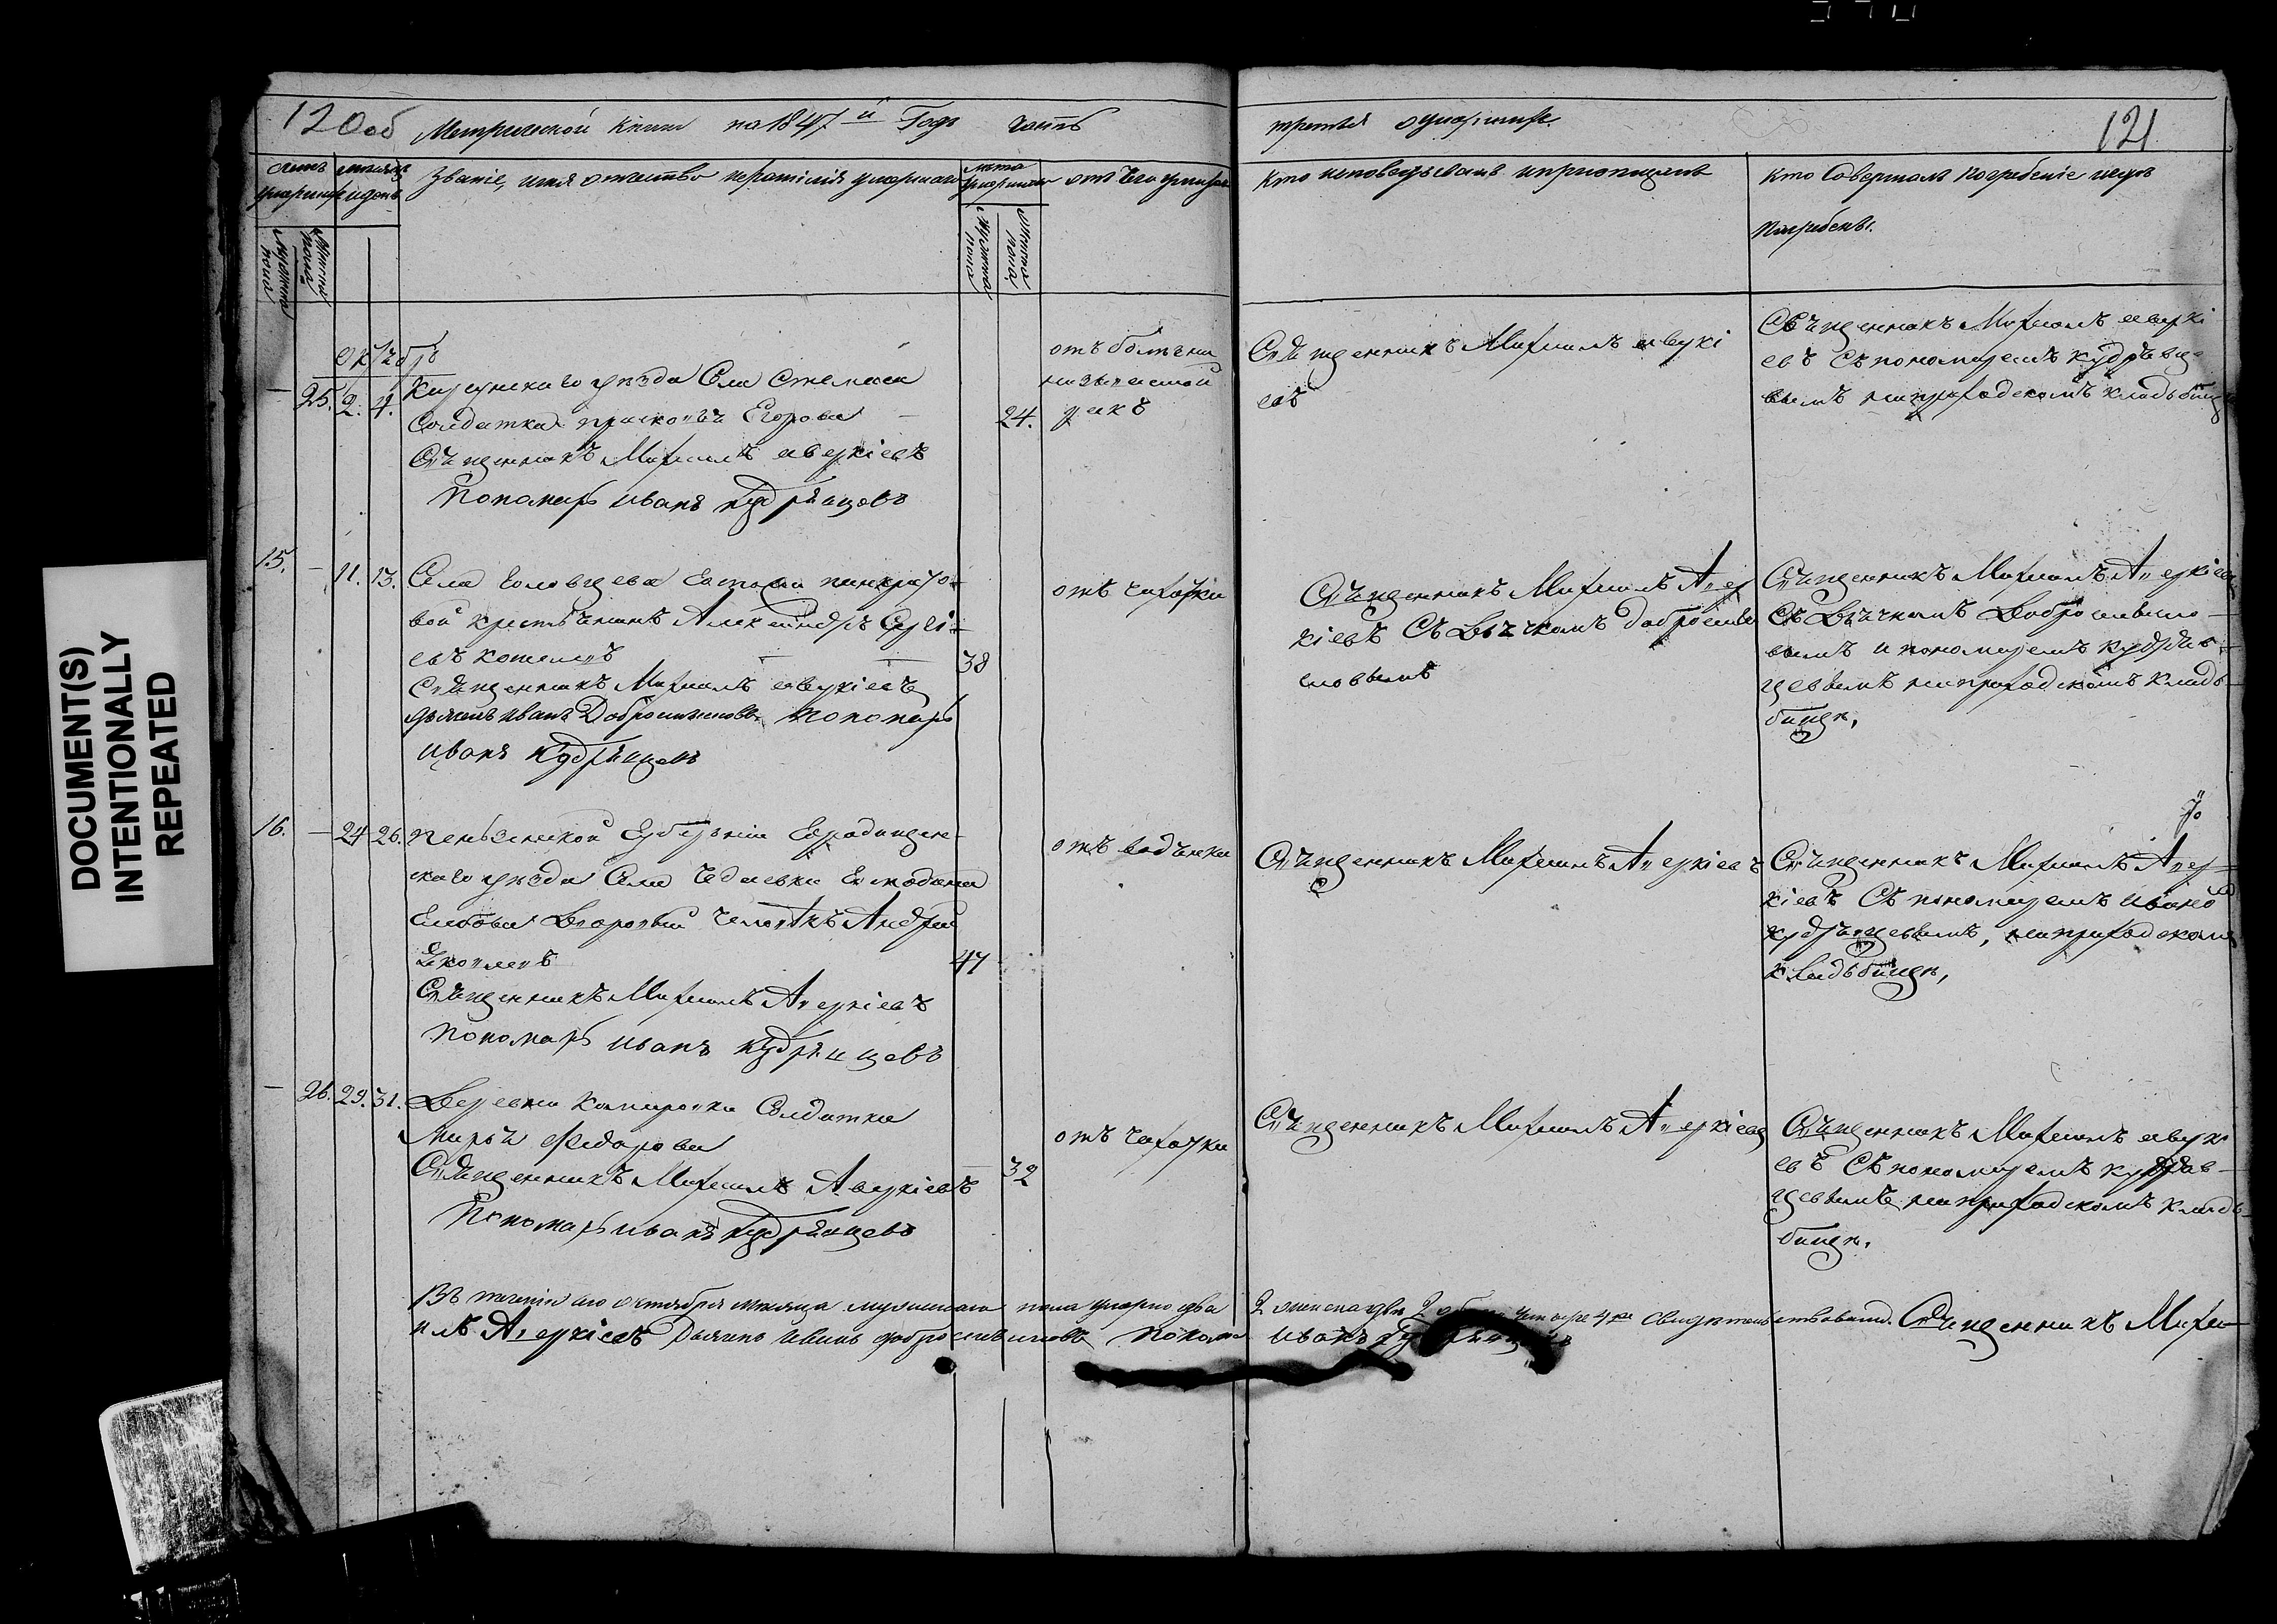 120 об Метрической книги на 1847 й Годъ часть
третья о умершихъ.
121
счетъ умершихъ
мужеска пола
женска пола
месяцъ и день
Званіе, имя отчество и фамилія умершаго
лета умершаго
мужеска пола
женска пола
отъ чего умеръ
Кто исповедывалъ и пріобщалъ
Кто совершалъ погребеніе и где
погребены.
Октябрь
— 25. 2. 4.
уезда Села
Солдатка Прасковья Егорова
Священникъ Михаилъ Аверкіевъ
Пономарь Иванъ Кудрявцевъ
24.
отъ болезни
Священникъ Михаилъ Аверкі
евъ
Священникъ Михаилъ Аверкі
евъ съ пономаремъ Кудрявце
вымъ на приходскомъ кладбищ
15. — 11. 13.
Села
вой крестьянинъ Александръ Сергі
евъ
38
Священникъ Михаилъ Аверкіевъ
Дьячекъ Иванъ Добросмысловъ Пономарь
Иванъ Кудрявцевъ
отъ чахотки
Священникъ Михаилъ Авер
кіевъ съ Дьячкомъ Добросмы
словымъ
Священникъ Михаилъ Аверкіевъ
съ Дьячкомъ Добросмысло
вымъ и пономаремъ Кудряв
цевымъ на приходскомъ клад
бище,
16. — 24 26.
Пензенской Губерніи Городищен
скаго уезда Села
Дворовый человекъ Андрей
Яковлевъ
47
Священникъ Михаилъ Аверкіевъ
Пономарь Иванъ Кудрявцевъ
отъ водянки
Священникъ Михаилъ Аверкіевъ
Священникъ Михаилъ Авер
кіевъ съ пономаремъ Ивано
Кудрявцевымъ, на приходскомъ
кладбище,
— 26. 29. 31.
Деревни Солдатка
Марья Федорова
32
Священникъ Михаилъ Аверкіевъ
Пономарь Иванъ Кудрявцевъ
отъ чахотки
Священникъ Михаилъ Аверкіевъ
Священникъ Михаилъ Аверкі
евъ съ пономаремъ Кудряв
цевымъ на приходскомъ клад
бище.
Въ теченіи сего октября месяца мужескаго пола умерло два 2 женска две 2 обоего четыре 4 ре Свидетельствовали. Священникъ Михаи
илъ Аверкіевъ Дьячекъ Иванъ Добросмысловъ Понома Иванъ Кудрявцевъ
DOCUMENT(S)
INTENTIONALLY
REPEATED